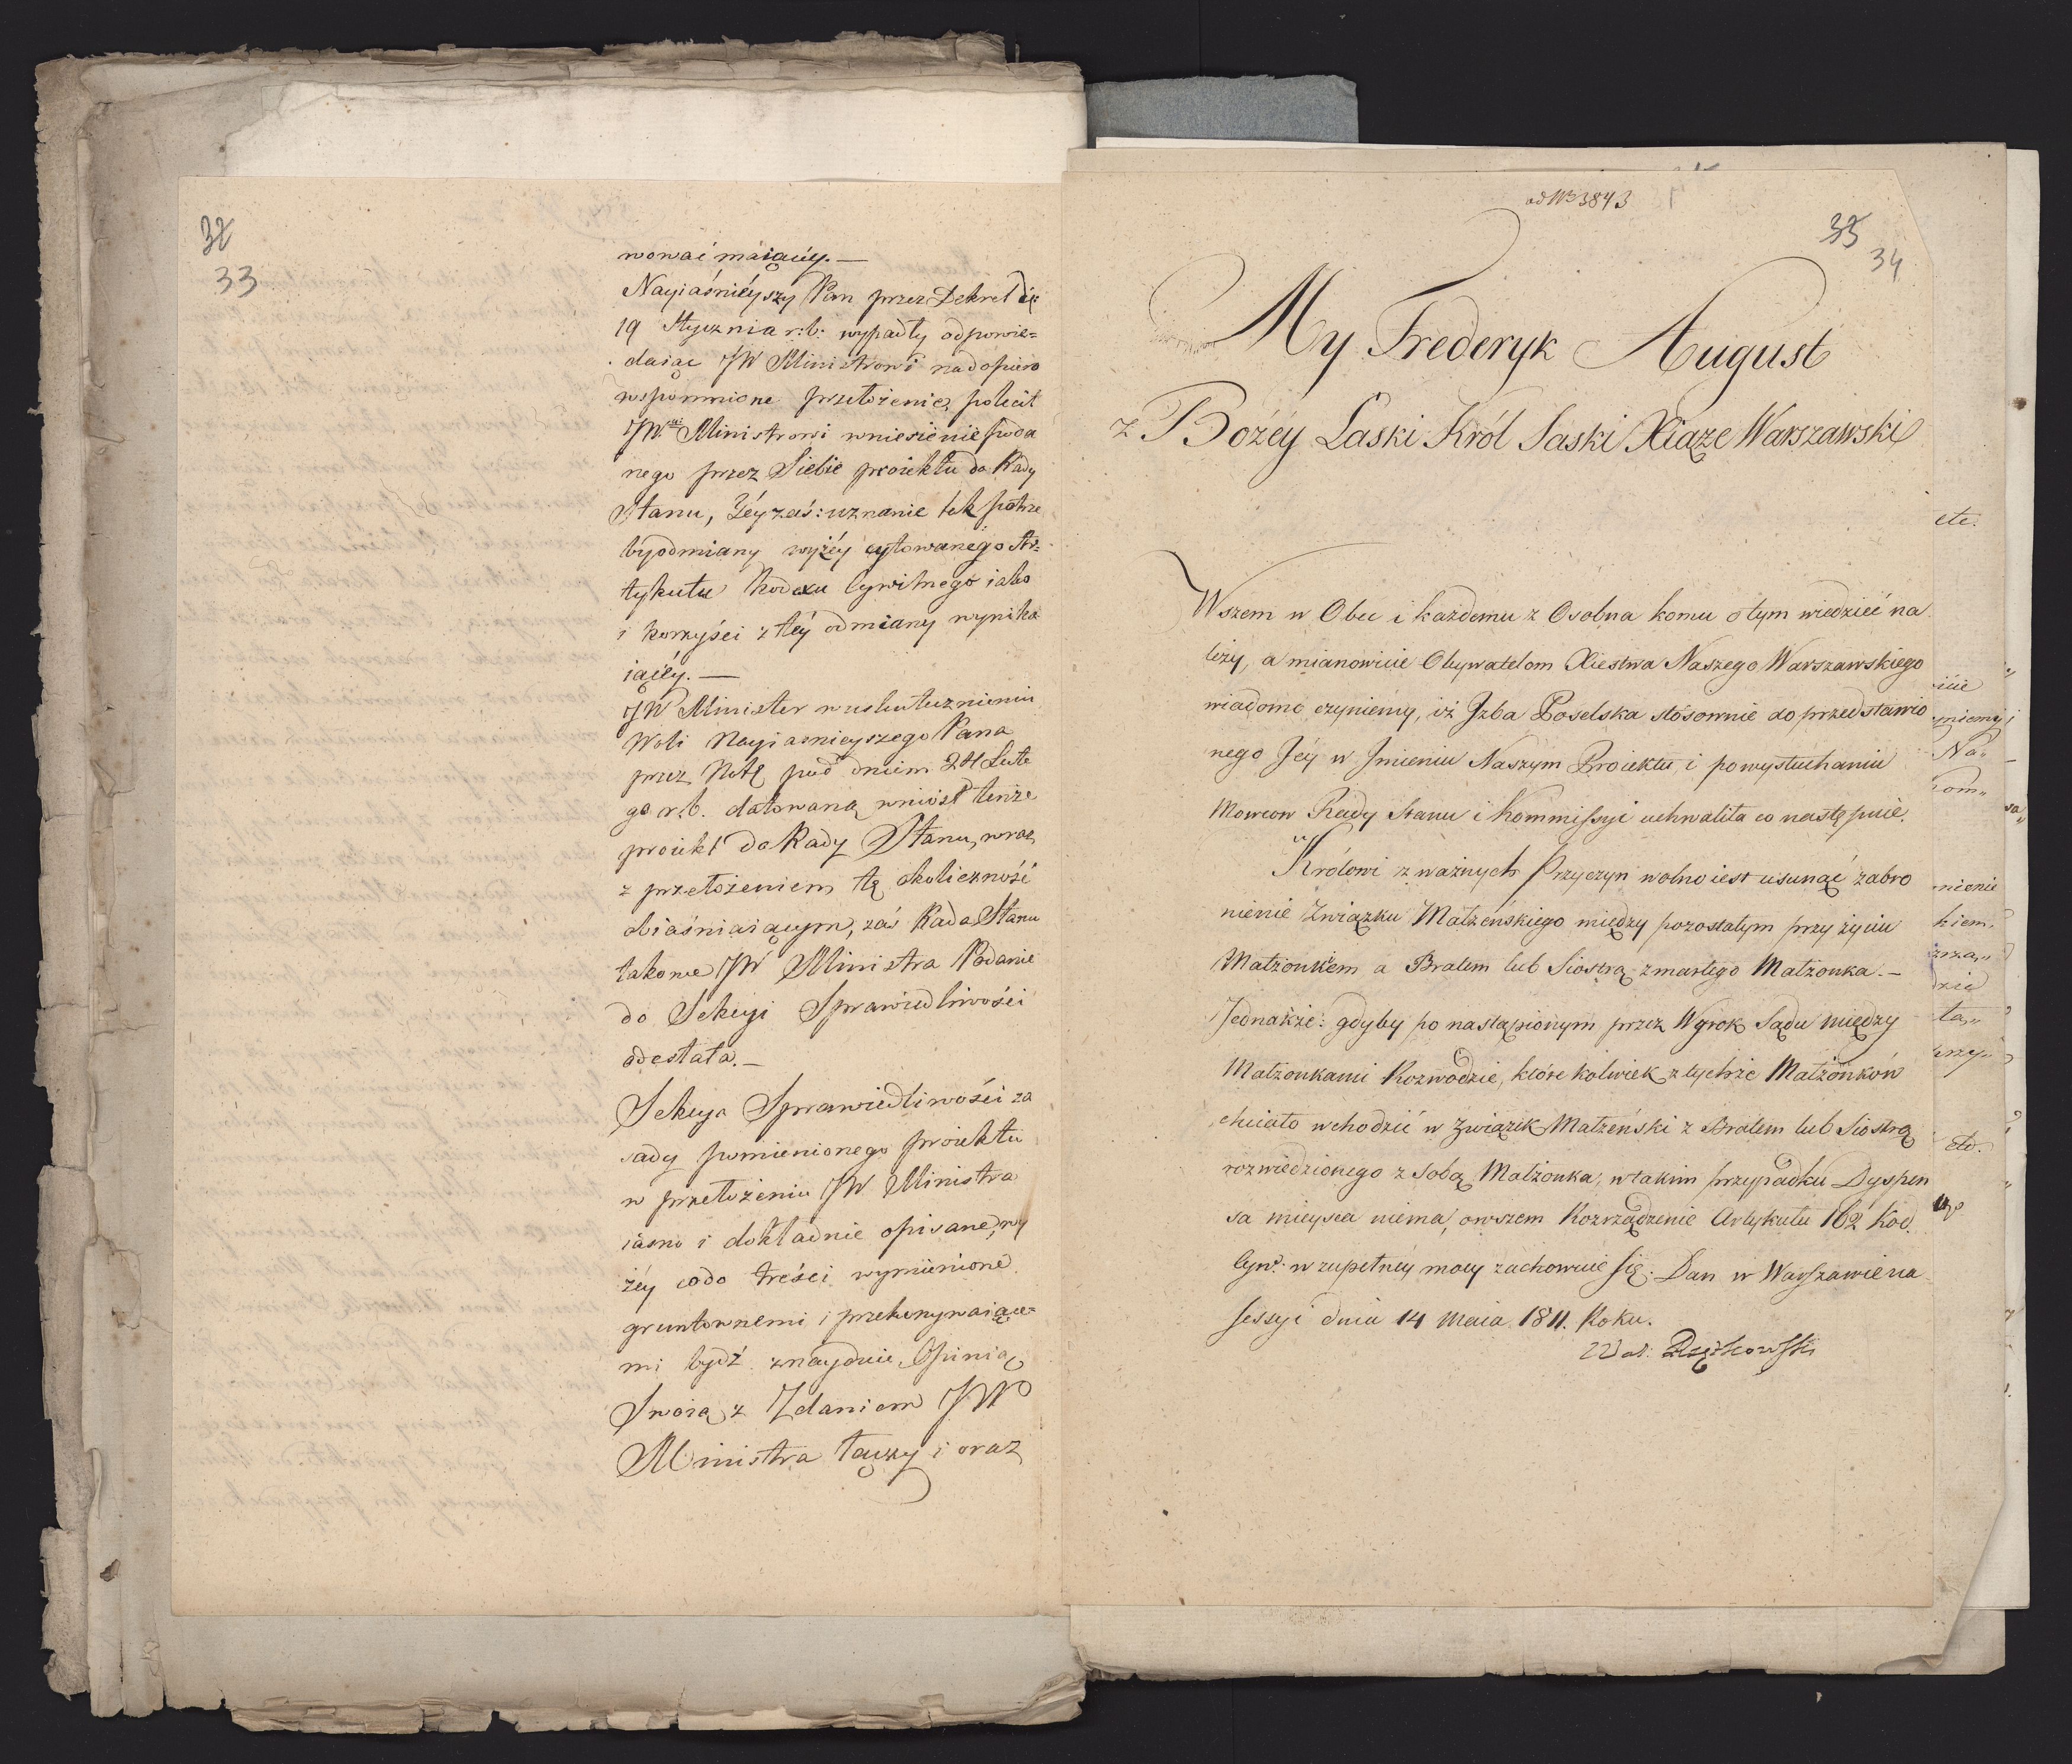 32
33
wować maiącéy. —
Nayiaśniéyszy Pan przez Dekret d:
19 Stycznia r: b: wypadły odpowie=
daiąc JW Ministrowi na dopiero
wspomnione przełożenie, polecił
JW. Ministrowi wniesienie poda
nego przez Siebie proiektu do Rady
Stanu, Jéy zaś: uznanie tak potrze
by odmiany wyżéy cytowanego Ar=
tykułu Kodexu Cywilnego iako
i korzyści z téy odmiany wynika
iącéy. —
JW Minister w uskutecznieniu
Woli Nayiasnieyszego Pana
przez Notę pod dniem 24 Lute
go r. b. datowaną wniósł tenże
proiekt do Rady Stanu, wraz
z przełożeniem tę okoliczność
obiaśniaiącym, zaś Rada Stanu
takowe JW Ministra Podanie
do Sekcyi Sprawiedliwości
odesłała. —
Sekcya Sprawiedliwości za
sady pomienionego proiektu
w przełożeniu JW Ministra
iasno i dokładnie opisane, wy
żéy co do treści wymienione
gruntownemi i przekonywaiące=
mi bydź znayduie, Opinią
Swoią z Zdaniem JW
Ministra łączy i oraz
ad Nº 3843
35
34
My Frederyk August
z Bożéy Łaski Król Saski Xiąże Warszawski
Wszem w Obec i każdemu z Osobna komu o tym wiedzieć na
leży, a mianowicie Obywatelom Xięstwa Naszego Warszawskiego
wiadomo czyniemy, iż Jzba Poselska stósownie do przedstawio
nego Jéy w Jmieniu Naszym Proiektu i po wysłuchaniu
Mowcow Rady Stanu i Kommissyi uchwaliła co następuie.
Królowi z ważnych Przyczyn wolno iest usunąć zabro
nienie Związku Małżeńskiego między pozostałym przy życiu
Małżonkiem a Bratem lub Siostrą zmarłego Małżonka. —
Jednakże: gdyby po nastąpionym przez Wyrok Sądu między
Małżonkami Rozwodzie, które kolwiek z tychże Małżonków
chciało wchodzić w Związek Małżeński z Bratem lub Siostrą
rozwiedzionego z Sobą Małżonka, w takim przypadku Dyspen
sa mieysca niema, owszem Rozrządzenie Artykułu 162 Kod.
Cyw. w zupełnéy mocy zachowuie się. Dan w Warszawie na
sessyi dnia 14 Maia 1811. Roku.
etc.
Na„
etc.